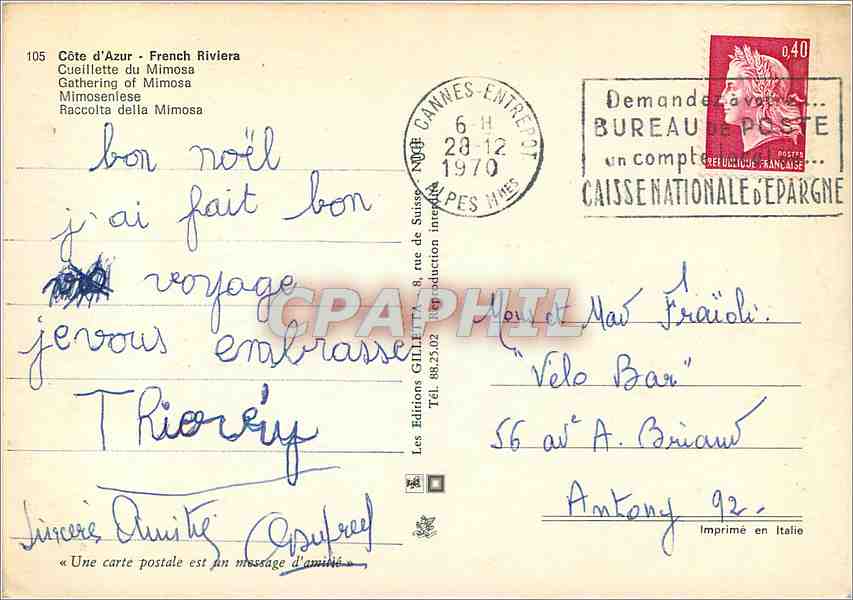 105 Côte d'Azur - French Riviera
Cueillette du Mimosa
Gathering of Mimosa
Mimosenlese
Raccolta della Mimosa
bon noël
j'ai fait bon
voyage
je vous embrasse
Sincère Amitié
« Une carte postale est un message d'amitié »
Les Editions GILLETTA - 8, rue de Suisse - NICE
Tél. 88.25.02 Reproduction interdite
CANNES-ENTREPOT
6-H
28-12
1970
ALPES Mmes
Demandez à votre...
BUREAU DE POSTE
un compte
CAISSE NATIONALE D'EPARGNE
0,40
POSTES
REPUBLIQUE FRANÇAISE
CPAPHIL
et Fraïoli.
"Velo Bar"
56 ave A. Briand
Antony 92.
Imprimé en Italie